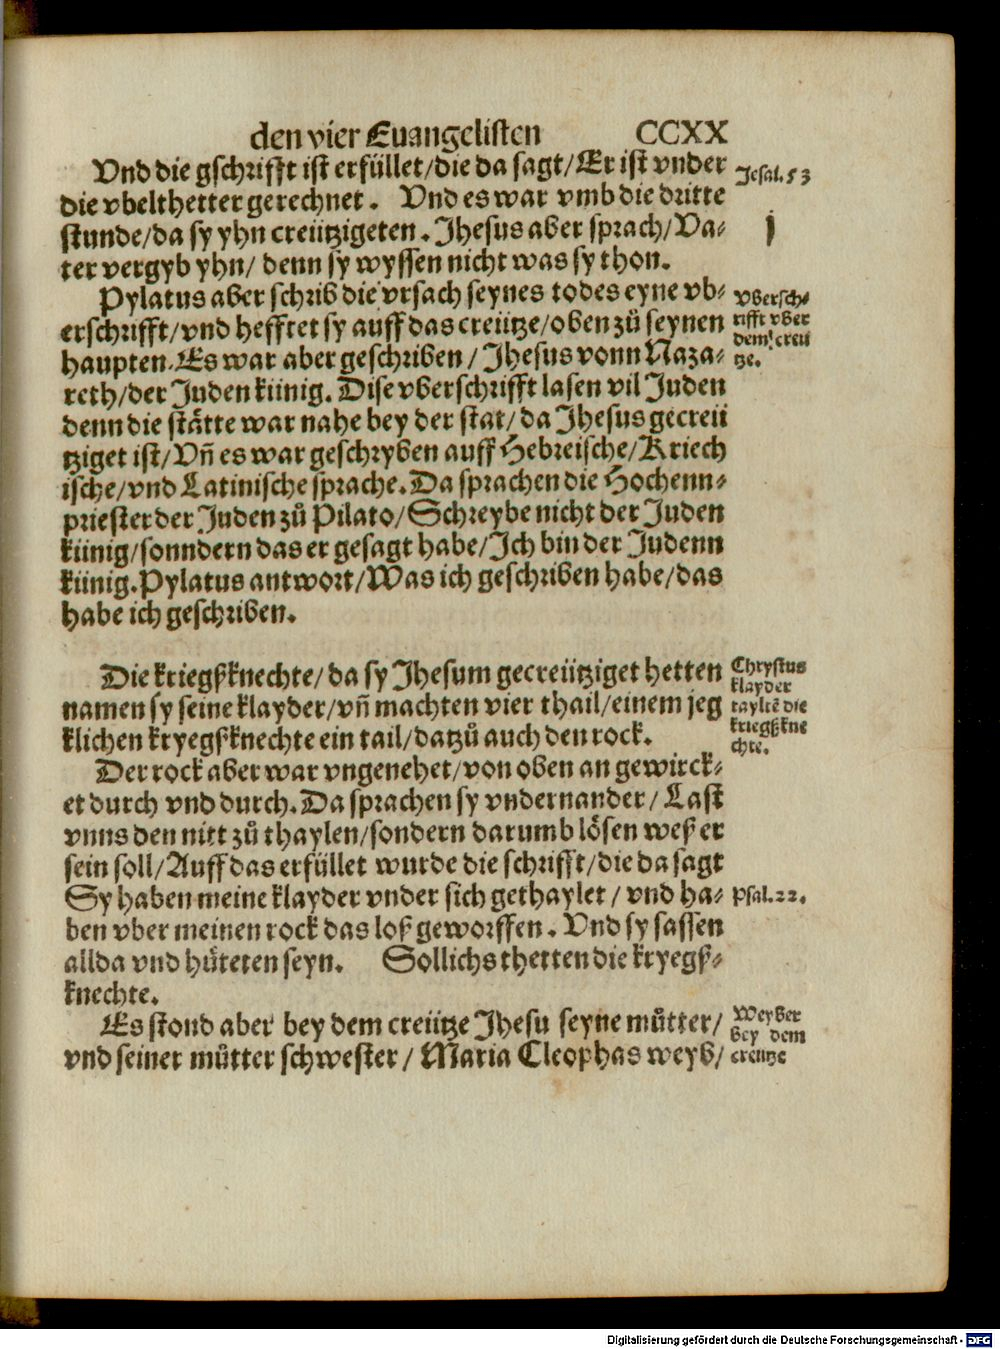 den vier Euangelisten CCXX
Vnd die gschrifft ist erfüllet/die da sagt/Er ist vnder
Jesai.53
die vbelthetter gerechnet. Vnd es war vmb die dritte
stunde/da sy yhn creützigeten. Jhesus aber sprach/Va-
ter vergyb yhn/ denn sy wyssen nicht was sy thon.
Pylatus aber schrib die vrsach seynes todes eyne vb-
erschrifft/vnd hefftet sy auff das creütze/oben zů seynen
haupten. Es war aber geschriben/Jhesus vonn Naza-
reth/der Juden künig. Dise vberschrifft lasen vil Juden
vbersch-
rifft vber
dem creü
tze.
denn die stätte war nahe bey der stat/da Jhesus gecreü
tziget ist/Vñ es war geschryben auff Hebreische/Kriech
ische/vnd Latinische sprache. Da sprachen die Hochenn-
priester der Juden zů Pilato/Schreybe nicht der Juden
künig/sonndern das er gesagt habe/Ich bin der Judenn
künig. Pylatus antwort/Was ich geschriben habe/das
habe ich geschriben.
Die kriegßknechte/da sy Jhesum gecreütziget hetten
namen sy seine klayder/vñ machten vier thail/einem jeg
klichen kryegßknechte ein tail/datzů auch den rock.
Chrystus
klayder
tayltē die
kriegßkne
chte.
Der rock aber war vngenehet/von oben an gewirck-
et durch vnd durch. Da sprachen sy vndernander/ Last
vnns den nitt zů thaylen/sondern darumb lösen weß er
sein soll/Auff das erfüllet wurde die schrifft/die da sagt
Sy haben meine klayder vnder sich gethaylet/ vnd ha-
Psal.22.
ben vber meinen rock das loß geworffen. Vnd sy sassen
allda vnd hůteten seyn. Sollichs thetten die kryegß-
knechte.
Es stond aber bey dem creütze Jhesu seyne můtter/
vnd seiner můtter schwester/ Maria Cleophas weyb/
Weyber
bey dem
creütze
Digitalisierung gefördert durch die Deutsche Forschungsgemeinschaft - DFG